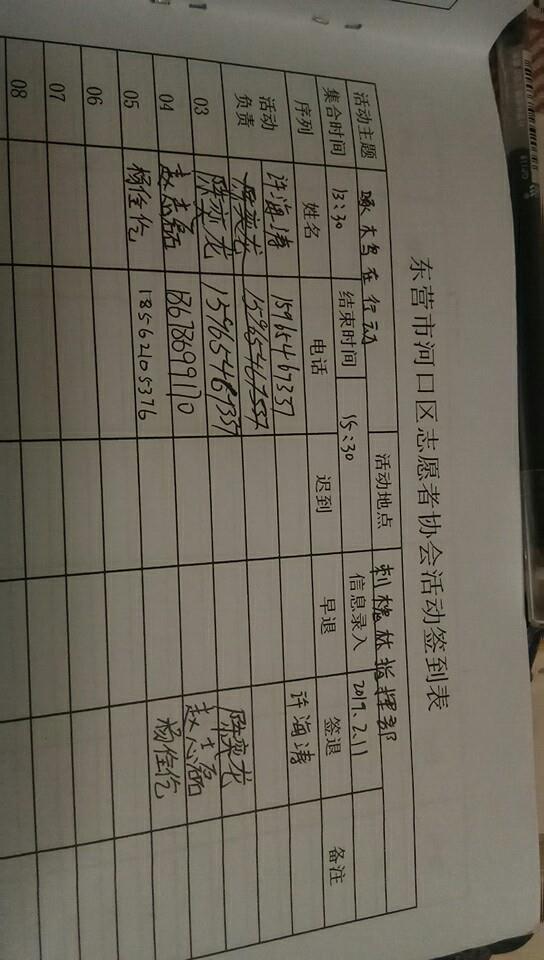 东营市河口区志愿者协会活动签到表
活动主题 啄木鸟在行动 活动地点 刺槐林指挥部
集合时间 13:30 结束时间 15:30 信息录入 2019.2.11
序列 姓名 电话 迟到 早退 签退 备注
活动负责 许海涛 15965467337 许海涛
陈奕龙
03 陈奕龙 15965467337 陈奕龙
04 赵志磊 赵志磊
05 杨佺伦 18562105376 杨佺伦
06
07
08